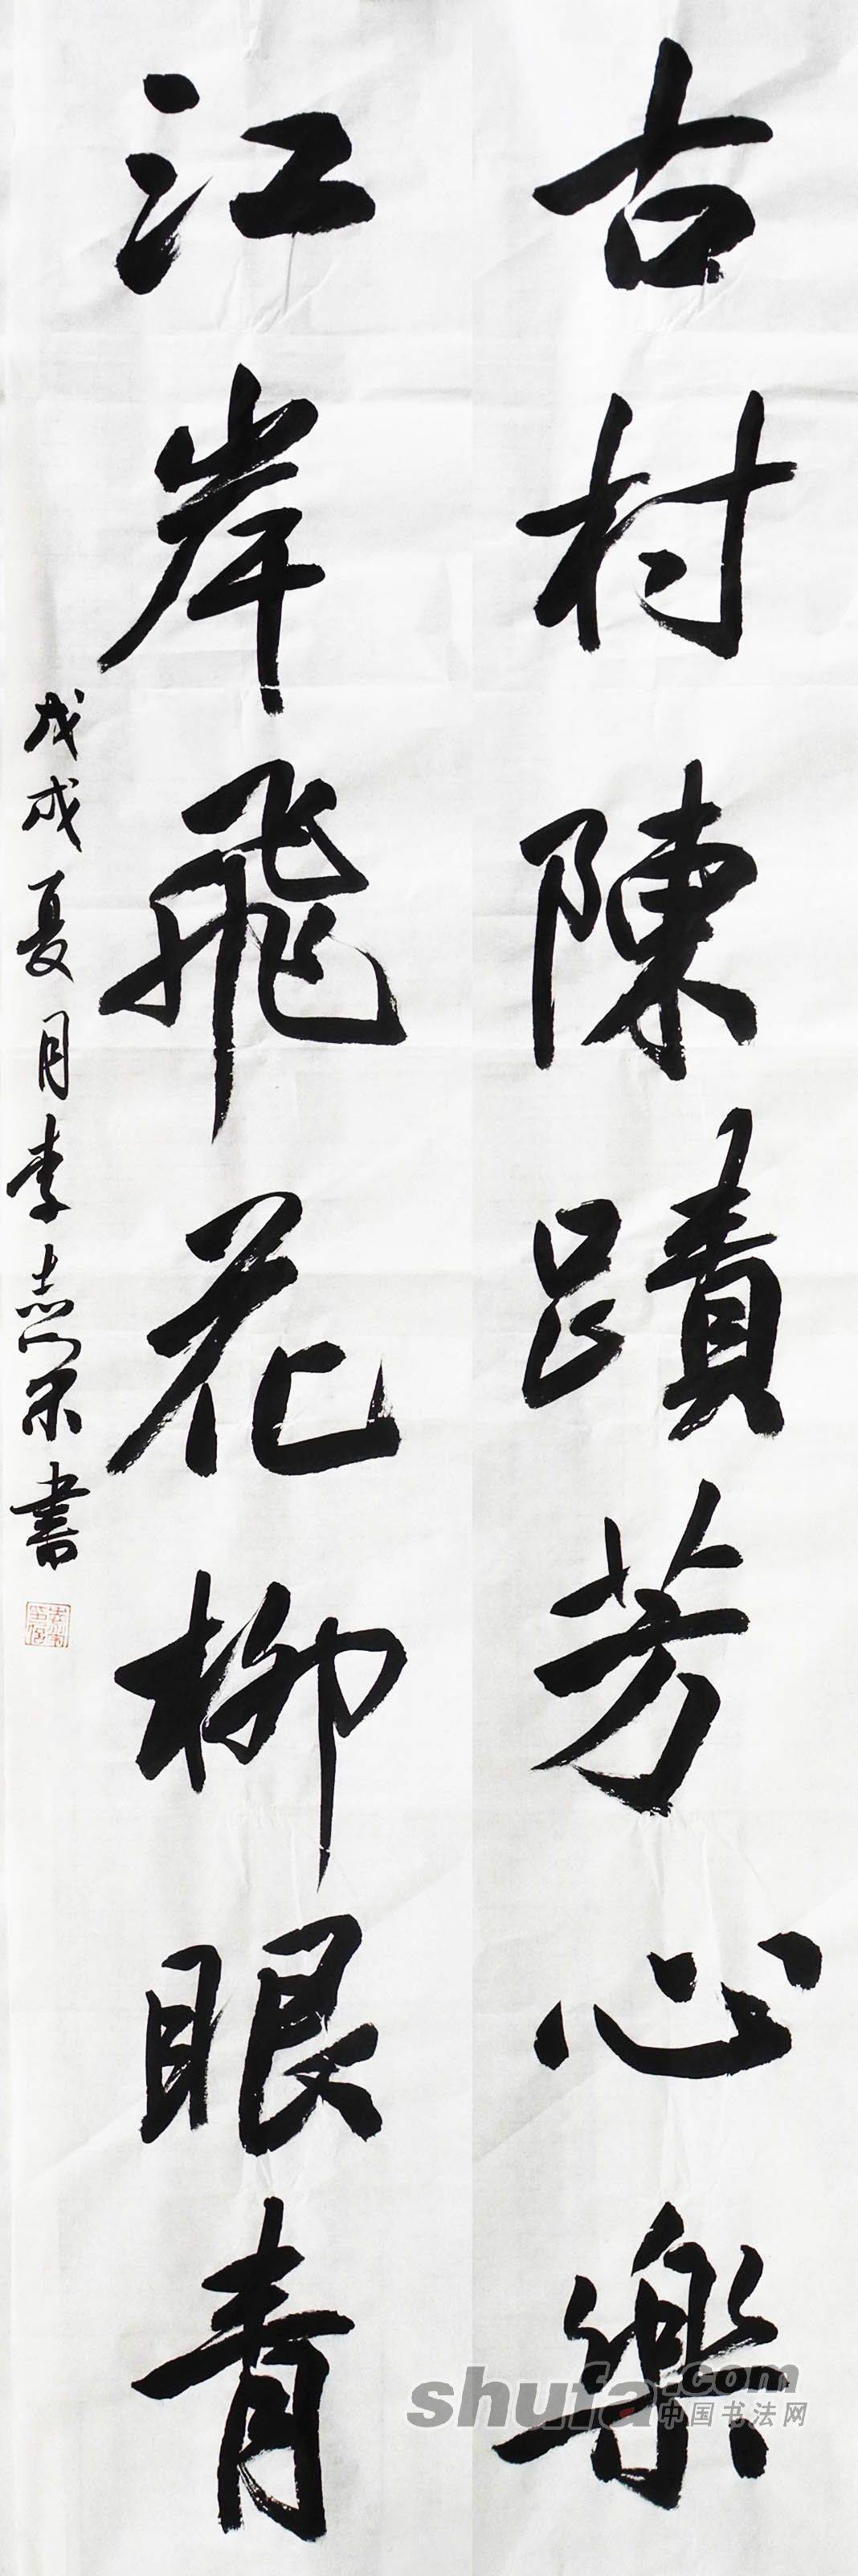 古村陳蹟芳心樂
江岸飛花柳眼青
戊戌夏月李志榮書
shufa.com
中国书法网